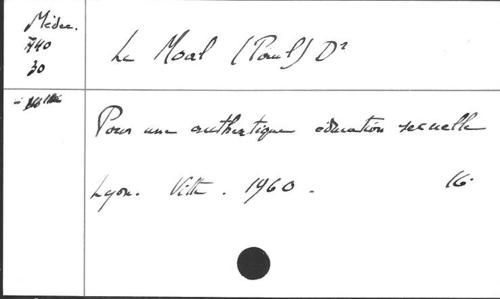 Médec.
A40
30
Le Moal (Paul) Dr
Pour une authentique éducation sexuelle
Lyon. Vitte. 1960. 16°